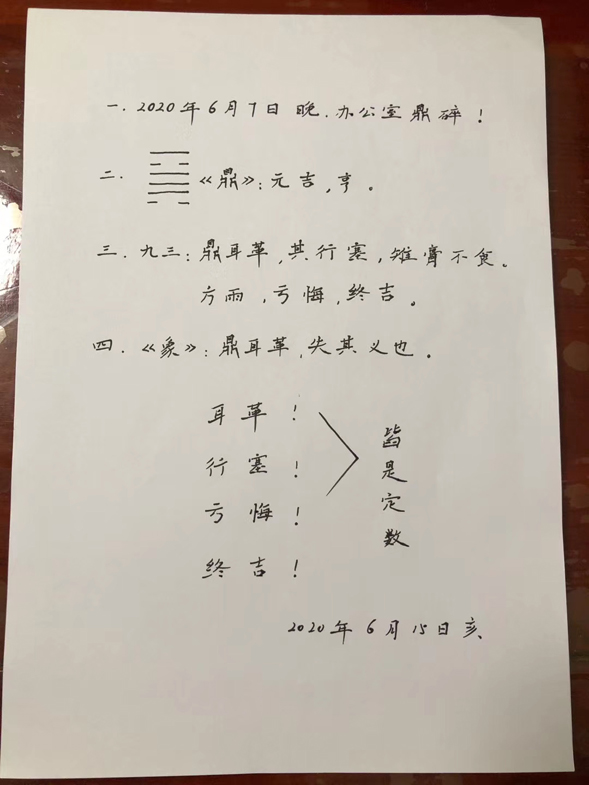 一. 2020年6月7日 晚. 办公室鼎碎!
二. 《鼎》: 元吉, 亨。
三. 九三: 鼎耳革, 其行塞, 雉膏不食。
方雨, 亏悔, 终吉。
四. 《象》: 鼎耳革, 失其义也。
耳革!
行塞!
亏悔!
终吉!
皆是定数
2020年6月15日亥